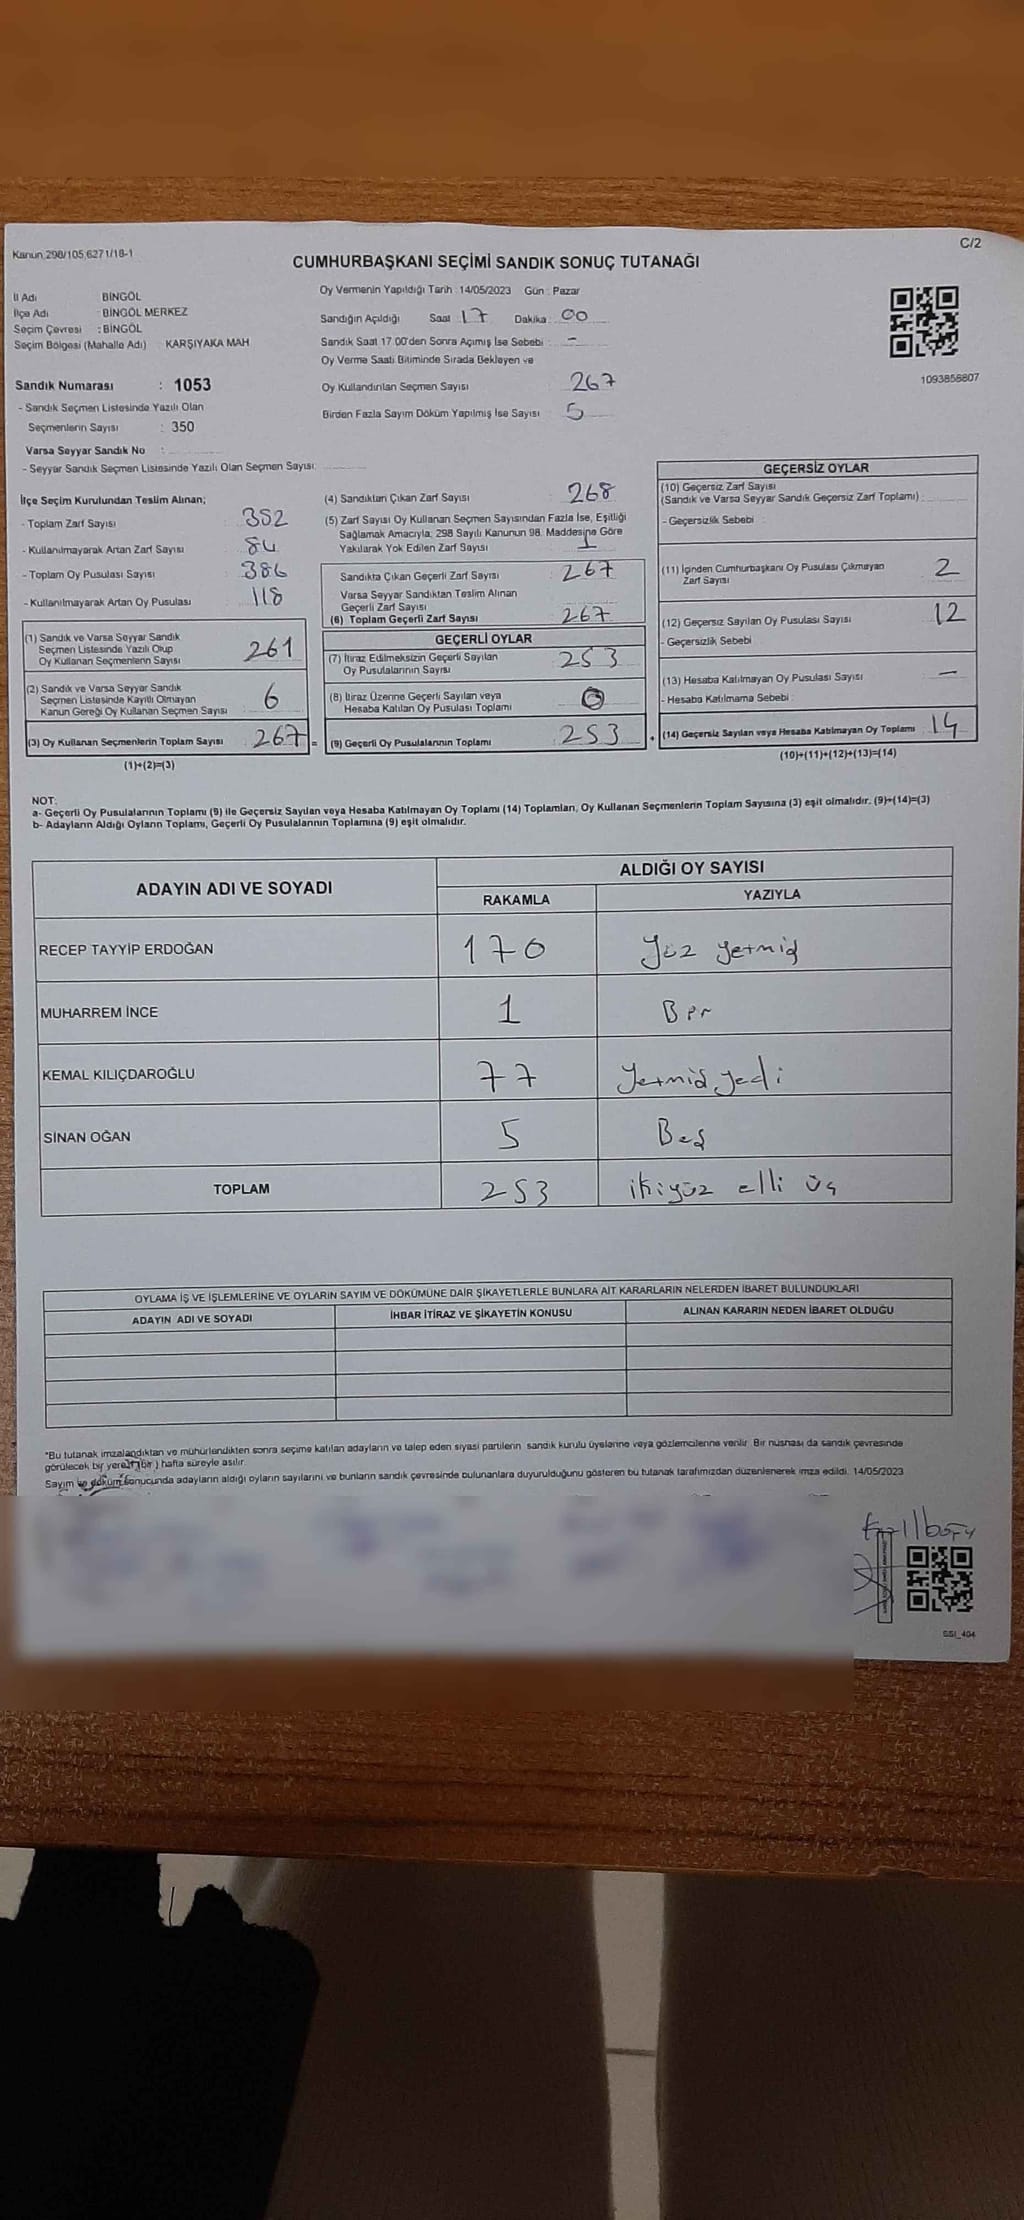 Kanun;298/105;6271/18-1
C/2
CUMHURBAŞKANI SEÇİMİ SANDIK SONUÇ TUTANAĞI
İl Adı BİNGÖL
İlçe Adı : BİNGÖL MERKEZ
Seçim Çevresi : BİNGÖL
Seçim Bölgesi (Mahalle Adı) : KARŞIYAKA MAH
Sandık Numarası : 1053
- Sandık Seçmen Listesinde Yazılı Olan
Seçmenlerin Sayısı : 350
Varsa Seyyar Sandık No :
- Seyyar Sandık Seçmen Listesinde Yazılı Olan Seçmen Sayısı:
Oy Vermenin Yapıldığı Tarih : 14/05/2023 Gün : Pazar
Sandığın Açıldığı Saat 17 Dakika : 00
Sandık Saat 17.00'den Sonra Açımış İse Sebebi : -
Oy Verme Saati Bitiminde Sırada Bekleyen ve
Oy Kullandırılan Seçmen Sayısı 267
Birden Fazla Sayım Döküm Yapılmış İse Sayısı : 5
1093858807
İlçe Seçim Kurulundan Teslim Alınan;
- Toplam Zarf Sayısı : 352
- Kullanılmayarak Artan Zarf Sayısı : 84
- Toplam Oy Pusulası Sayısı : 386
- Kullanılmayarak Artan Oy Pusulası : 118
(1) Sandık ve Varsa Seyyar Sandık
Seçmen Listesinde Yazılı Olup
Oy Kullanan Seçmenlerin Sayısı 261
(2) Sandık ve Varsa Seyyar Sandık
Seçmen Listesinde Kayıtlı Olmayan
Kanun Gereği Oy Kullanan Seçmen Sayısı 6
(3) Oy Kullanan Seçmenlerin Toplam Sayısı 267 =
(1)+(2)=(3)
(4) Sandıktan Çıkan Zarf Sayısı : 268
(5) Zarf Sayısı Oy Kullanan Seçmen Sayısından Fazla İse, Eşitliği
Sağlamak Amacıyla; 298 Sayılı Kanunun 98. Maddesine Göre
Yakılarak Yok Edilen Zarf Sayısı 1
Sandıkta Çıkan Geçerli Zarf Sayısı : 267
Varsa Seyyar Sandıktan Teslim Alınan
Geçerli Zarf Sayısı
(6) Toplam Geçerli Zarf Sayısı 267
GEÇERLİ OYLAR
(7) İtiraz Edilmeksizin Geçerli Sayılan
Oy Pusulalarının Sayısı 253
(8) İtiraz Üzerine Geçerli Sayılan veya
Hesaba Katılan Oy Pusulası Toplamı 0
(9) Geçerli Oy Pusulalarının Toplamı 253
GEÇERSİZ OYLAR
(10) Geçersiz Zarf Sayısı
(Sandık ve Varsa Seyyar Sandık Geçersiz Zarf Toplamı) :
- Geçersizlik Sebebi :
(11) İçinden Cumhurbaşkanı Oy Pusulası Çıkmayan
Zarf Sayısı 2
(12) Geçersiz Sayılan Oy Pusulası Sayısı 12
- Geçersizlik Sebebi
(13) Hesaba Katılmayan Oy Pusulası Sayısı -
- Hesaba Katılmama Sebebi :
(14) Geçersiz Sayılan veya Hesaba Katılmayan Oy Toplamı 14
(10)+(11)+(12)+(13)=(14)
NOT:
a- Geçerli Oy Pusulalarının Toplamı (9) ile Geçersiz Sayılan veya Hesaba Katılmayan Oy Toplamı (14) Toplamları, Oy Kullanan Seçmenlerin Toplam Sayısına (3) eşit olmalıdır. (9)+(14)=(3)
b- Adayların Aldığı Oyların Toplamı, Geçerli Oy Pusulalarının Toplamına (9) eşit olmalıdır.
ADAYIN ADI VE SOYADI
ALDIĞI OY SAYISI
RAKAMLA YAZIYLA
RECEP TAYYİP ERDOĞAN 170 Yüz yetmiş
MUHARREM İNCE 1 Bir
KEMAL KILIÇDAROĞLU 77 Yetmiş yedi
SİNAN OĞAN 5 Beş
TOPLAM 253 ikiyüz elli üç
OYLAMA İŞ VE İŞLEMLERİNE VE OYLARIN SAYIM VE DÖKÜMÜNE DAİR ŞİKAYETLERLE BUNLARA AİT KARARLARIN NELERDEN İBARET BULUNDUKLARI
ADAYIN ADI VE SOYADI İHBAR İTİRAZ VE ŞİKAYETİN KONUSU ALINAN KARARIN NEDEN İBARET OLDUĞU
*Bu tutanak imzalandıktan ve mühürlendikten sonra seçime katılan adayların ve talep eden siyasi partilerin sandık kurulu üyelerine veya gözlemcilerine verilir. Bir nüshası da sandık çevresinde
görülecek bir yere 1 (bir) hafta süreyle asılır.
Sayım ve döküm sonucunda adayların aldığı oyların sayılarını ve bunların sandık çevresinde bulunanlara duyurulduğunu gösteren bu tutanak tarafımızdan düzenlenerek imza edildi. 14/05/2023
SSI_404